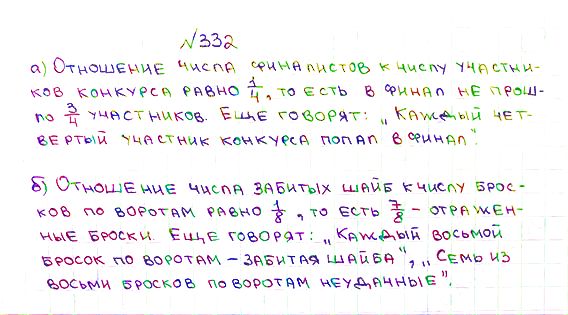 №332
а) Отношение числа финалистов к числу участни-
ков конкурса равно 1/4, то есть в финал не прош-
ло 3/4 участников. Еще говорят: „Каждый чет-
вертый участник конкурса попал в финал".
б) Отношение числа забитых шайб к числу брос-
ков по воротам равно 1/8, то есть 7/8 – отражен-
ные броски. Еще говорят: „Каждый восьмой
бросок по воротам – забитая шайба", „Семь из
восьми бросков по воротам неудачные".